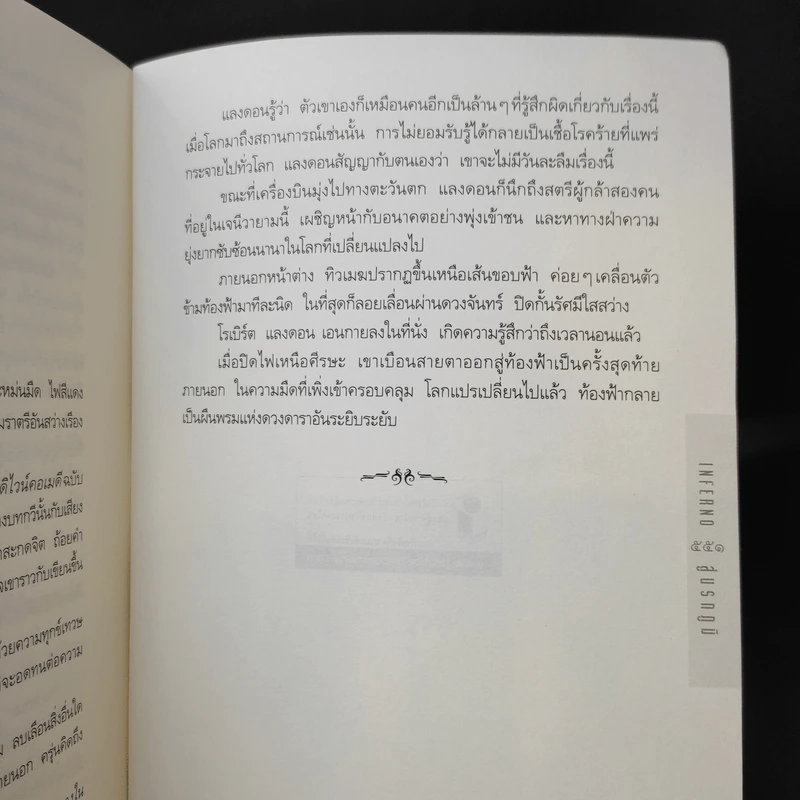 ะหม่นมืด ไฟสีแดง
มราตรีอันสว่างเรือง
ดิไวน์คอเมดีฉบับ
งบทกวีนั้นกับเสียง
าสะกดจิต ถ้อยคำ
จเขาราวกับเขียนขึ้น
้วยความทุกข์เทวษ
จะอดทนต่อความ
ม ลบเลือนสิ่งอื่นใด
ายนอก ครุ่นคิดถึง
แลงดอนรู้ว่า ตัวเขาเองก็เหมือนคนอีกเป็นล้านๆ ที่รู้สึกผิดเกี่ยวกับเรื่องนี้
เมื่อโลกมาถึงสถานการณ์เช่นนั้น การไม่ยอมรับรู้ได้กลายเป็นเชื้อโรคร้ายที่แพร่
กระจายไปทั่วโลก แลงดอนสัญญากับตนเองว่า เขาจะไม่มีวันละลืมเรื่องนี้
ขณะที่เครื่องบินมุ่งไปทางตะวันตก แลงดอนก็นึกถึงสตรีผู้กล้าสองคน
ที่อยู่ในเจนีวายามนี้ เผชิญหน้ากับอนาคตอย่างพุ่งเข้าชน และหาทางฝ่าความ
ยุ่งยากซับซ้อนนานาในโลกที่เปลี่ยนแปลงไป
ภายนอกหน้าต่าง ทิวเมฆปรากฏขึ้นเหนือเส้นขอบฟ้า ค่อยๆ เคลื่อนตัว
ข้ามท้องฟ้ามาทีละนิด ในที่สุดก็ลอยเลื่อนผ่านดวงจันทร์ ปิดกั้นรัศมีใสสว่าง
โรเบิร์ต แลงดอน เอนกายลงในที่นั่ง เกิดความรู้สึกว่าถึงเวลานอนแล้ว
เมื่อปิดไฟเหนือศีรษะ เขาเบือนสายตาออกสู่ท้องฟ้าเป็นครั้งสุดท้าย
ภายนอก ในความมืดที่เพิ่งเข้าครอบคลุม โลกแปรเปลี่ยนไปแล้ว ท้องฟ้ากลาย
เป็นผืนพรมแห่งดวงดาราอันระยิบระยับ
INFERNO ๕๕๑ สู่นรกภูมิ